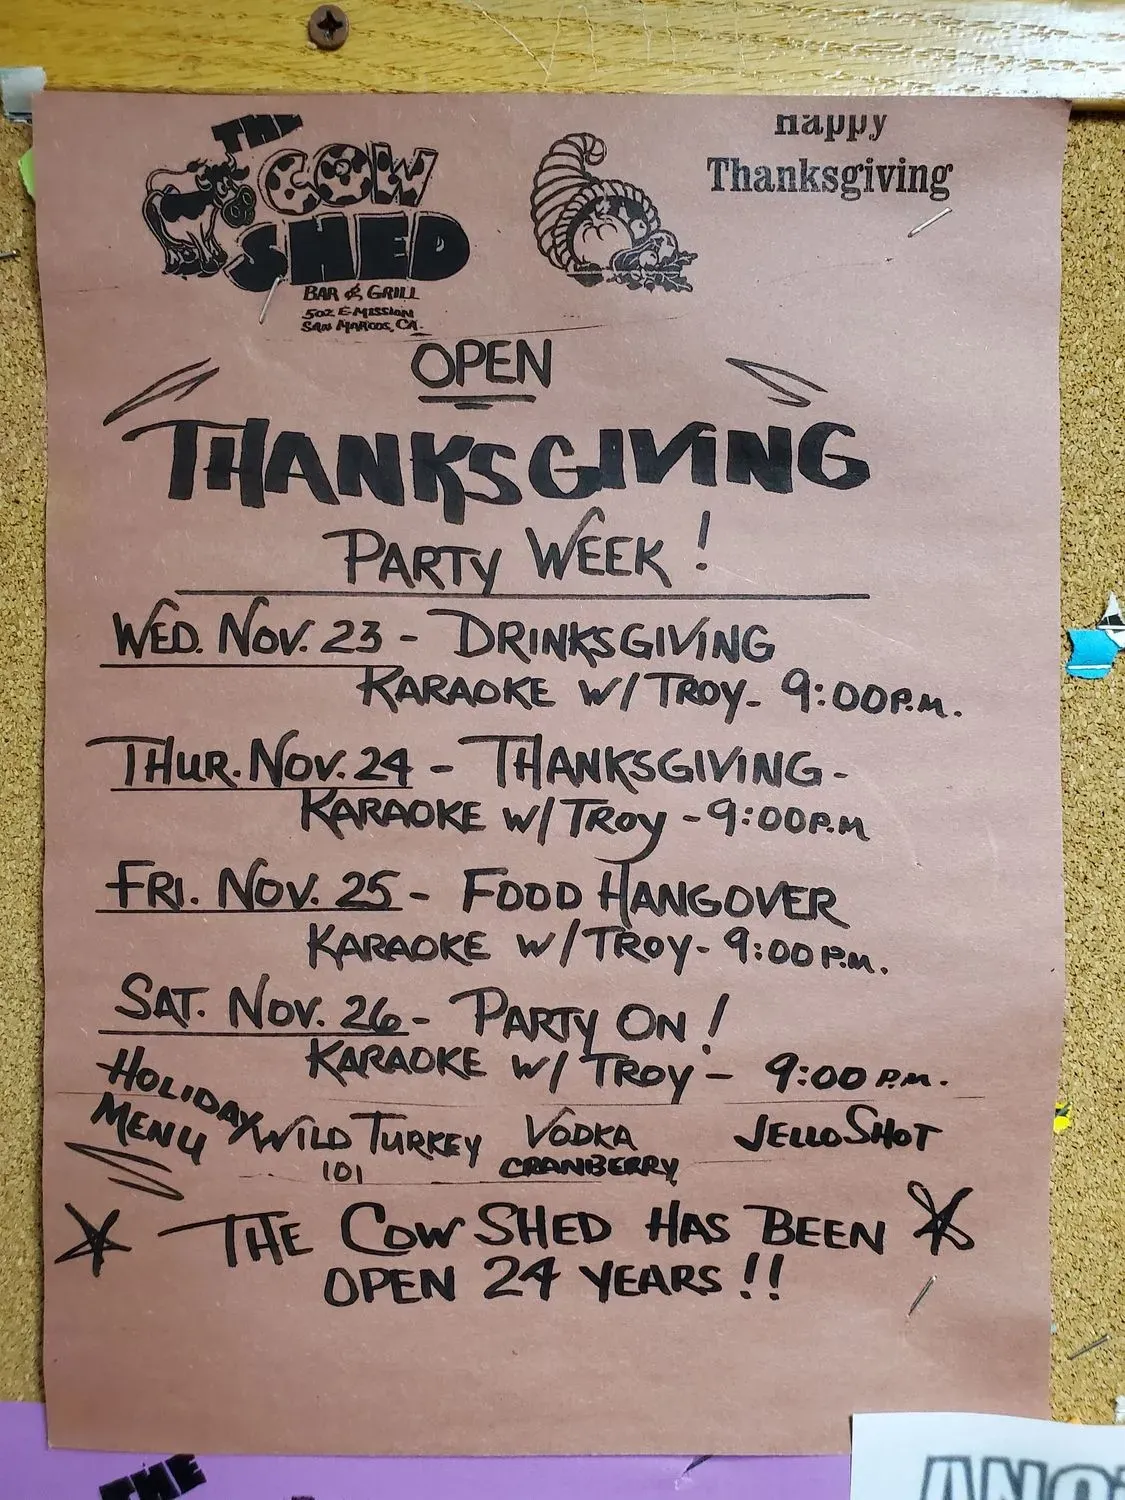 THE
COW
SHED
BAR & GRILL
502 E. MISSION
SAN MARCOS, CA.
Happy
Thanksgiving
OPEN
THANKSGIVING
PARTY WEEK!
WED. NOV. 23 - DRINKSGIVING
KARAOKE W/ TROY - 9:00 P.M.
THUR. NOV. 24 - THANKSGIVING -
KARAOKE W/ TROY - 9:00 P.M
FRI. NOV. 25 - FOOD HANGOVER
KARAOKE W/ TROY - 9:00 P.M.
SAT. NOV. 26 - PARTY ON!
KARAOKE W/ TROY - 9:00 P.M.
HOLIDAY
MENU
WILD TURKEY
101
VODKA
CRANBERRY
JELLO SHOT
THE COW SHED HAS BEEN
OPEN 24 YEARS!!
THE